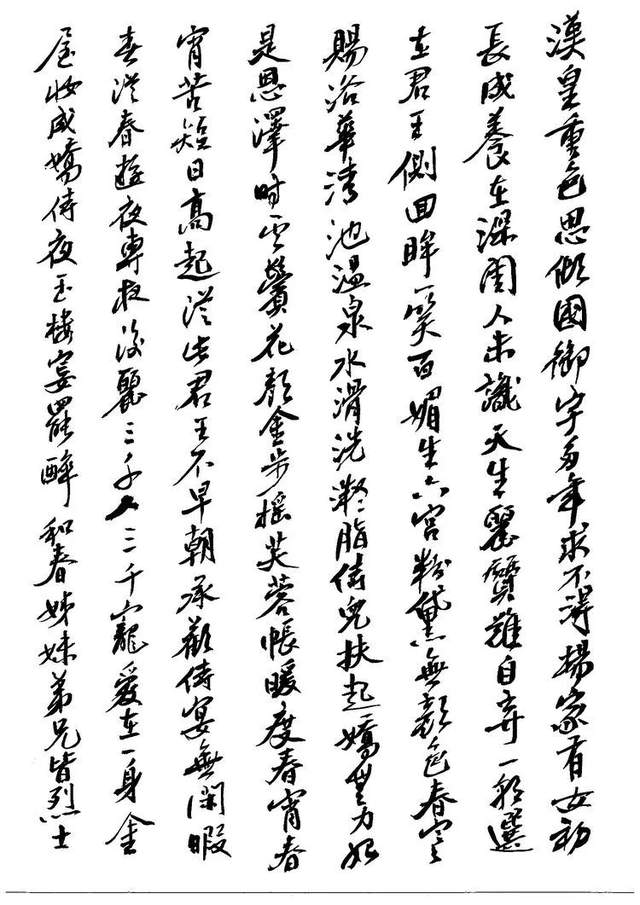 漢皇重色思傾國御宇多年求不得楊家有女初
長成養在深閨人未識天生麗質難自弃一朝選
在君王側回眸一笑百媚生六宮粉黛無顏色春寒
賜浴華清池溫泉水滑洗凝脂侍兒扶起嬌無力始
是恩澤时雲鬢花顏金步搖芙蓉帳暖度春宵春
宵苦短日高起從此君王不早朝承歡侍宴無閑暇
春從春遊夜專夜後麗三千人三千寵愛在一身金
屋妝成嬌侍夜玉樓宴罷醉和春姊妹弟兄皆烈士